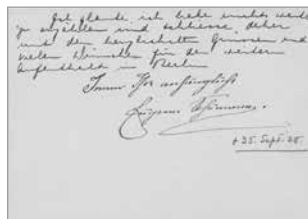 Ich glaube, ich habe nichts mehr
zu erzählen und schliesse, daher
mit den herzlichsten Grüssen und
vielen Wünschen für den weitern
Aufenthalt in Berlin
Immer Ihr anhänglichst
Eugenie Schumann.
+ 25. Sept. 38.